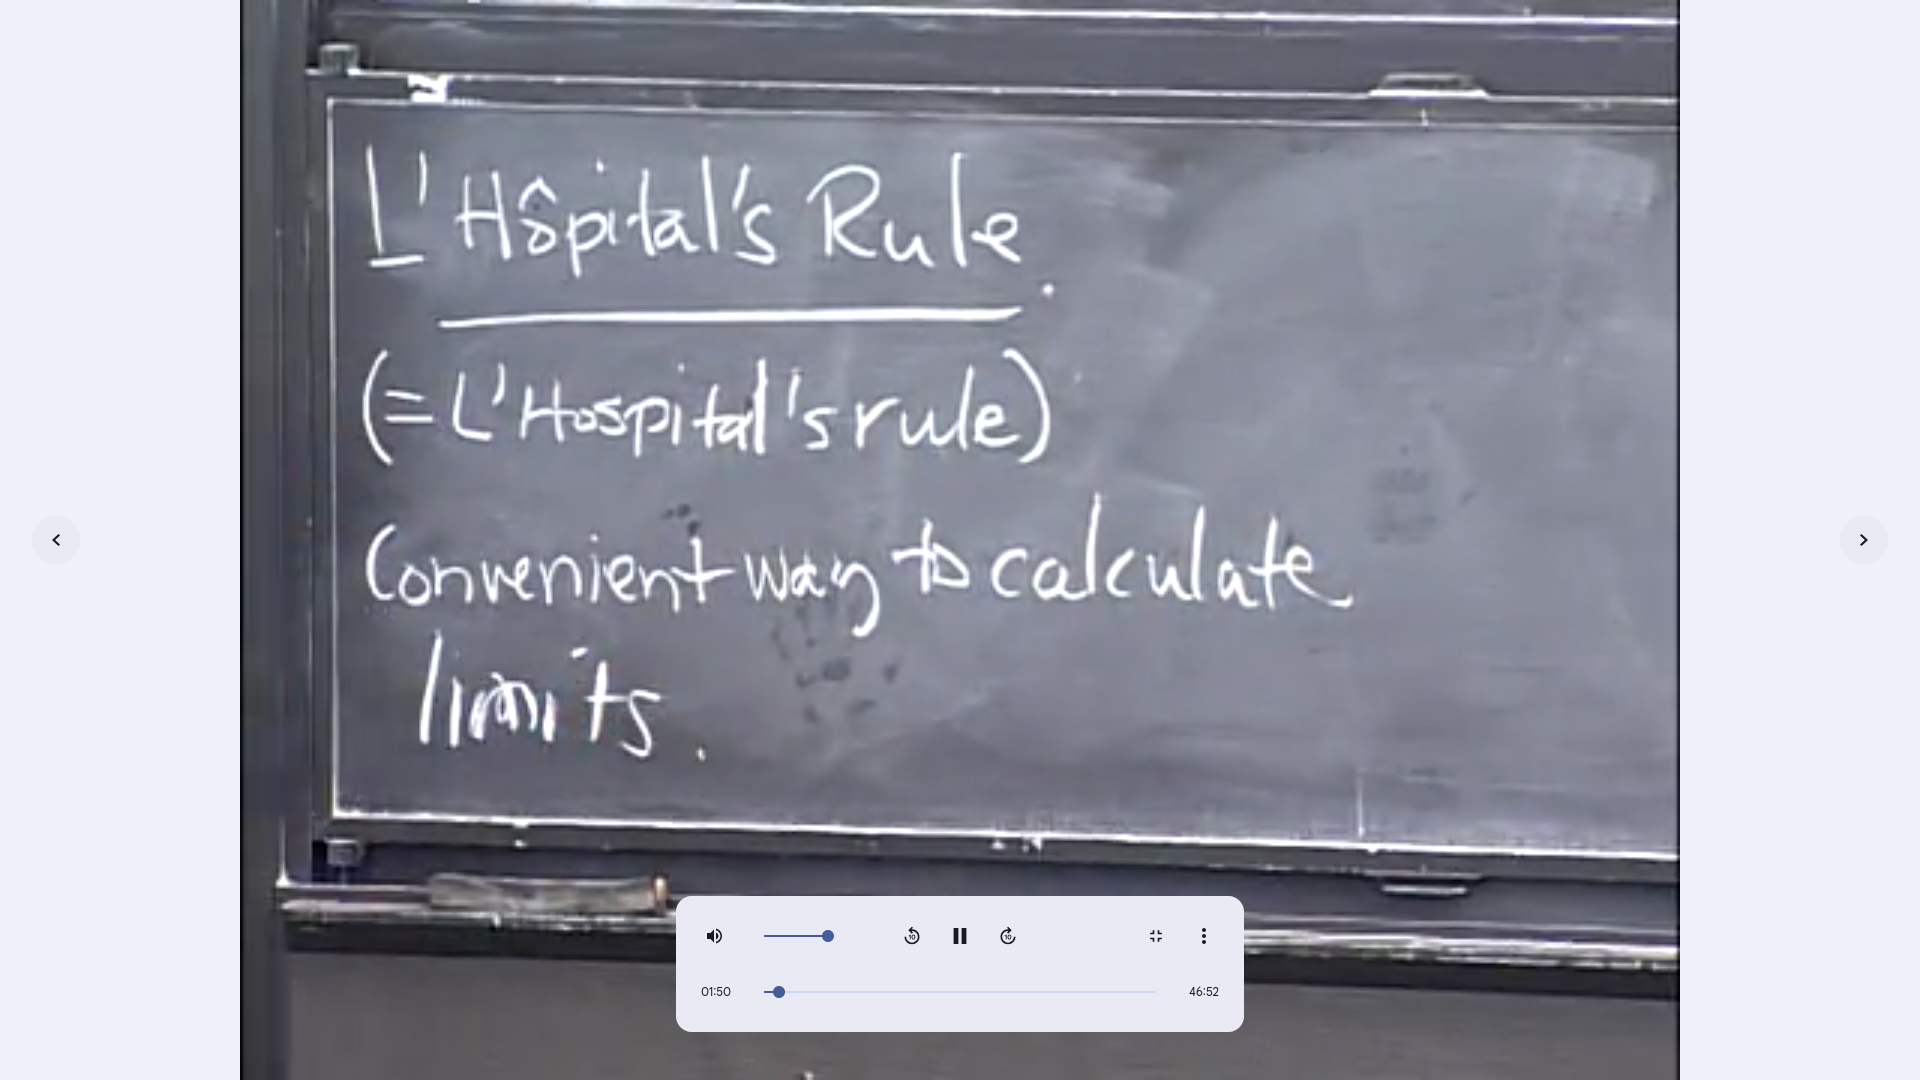 L'Hôpital's Rule.
(= L'Hospital's rule)
Convenient way to calculate
limits.
01:50
46:52